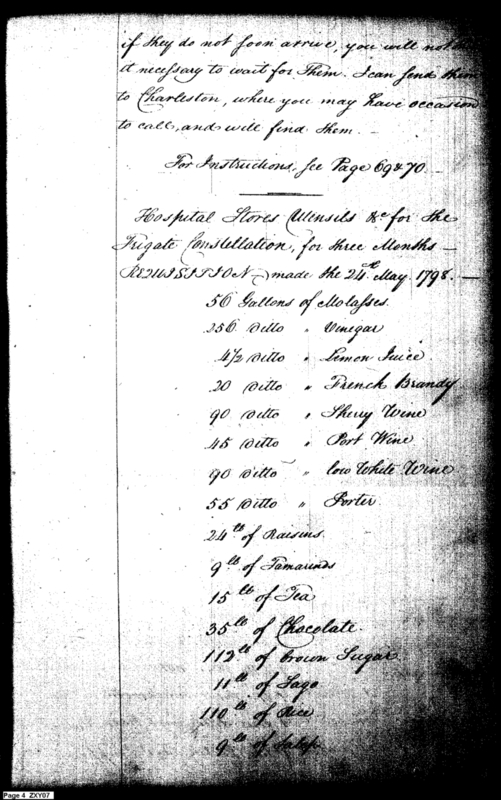 if they do not soon arrive, you will not
it necessary to wait for Them. I can send them
to Charleston, where you may have occasion
to call, and will find them. —
For Instructions, see Page 69 & 70. —
Hospital Stores Utensils &c for the
Frigate Constellation, for three Months —
REQUISITION — made the 24th May 1798. —
56 Gallons of Molasses.
256 Ditto " Vinegar
4½ Ditto " Lemon Juice
20 Ditto " French Brandy
90 Ditto " Sherry Wine
45 Ditto " Port Wine
90 Ditto " low White Wine
55 Ditto " Porter
24 lb of Raisins
9 lb of Tamarinds
15 lb of Tea
35 lb of Chocolate.
112 lb of brown Sugar
11 lb of Sago
110 lb of Rice
9 lb of Salep
Page 4 ZXY07